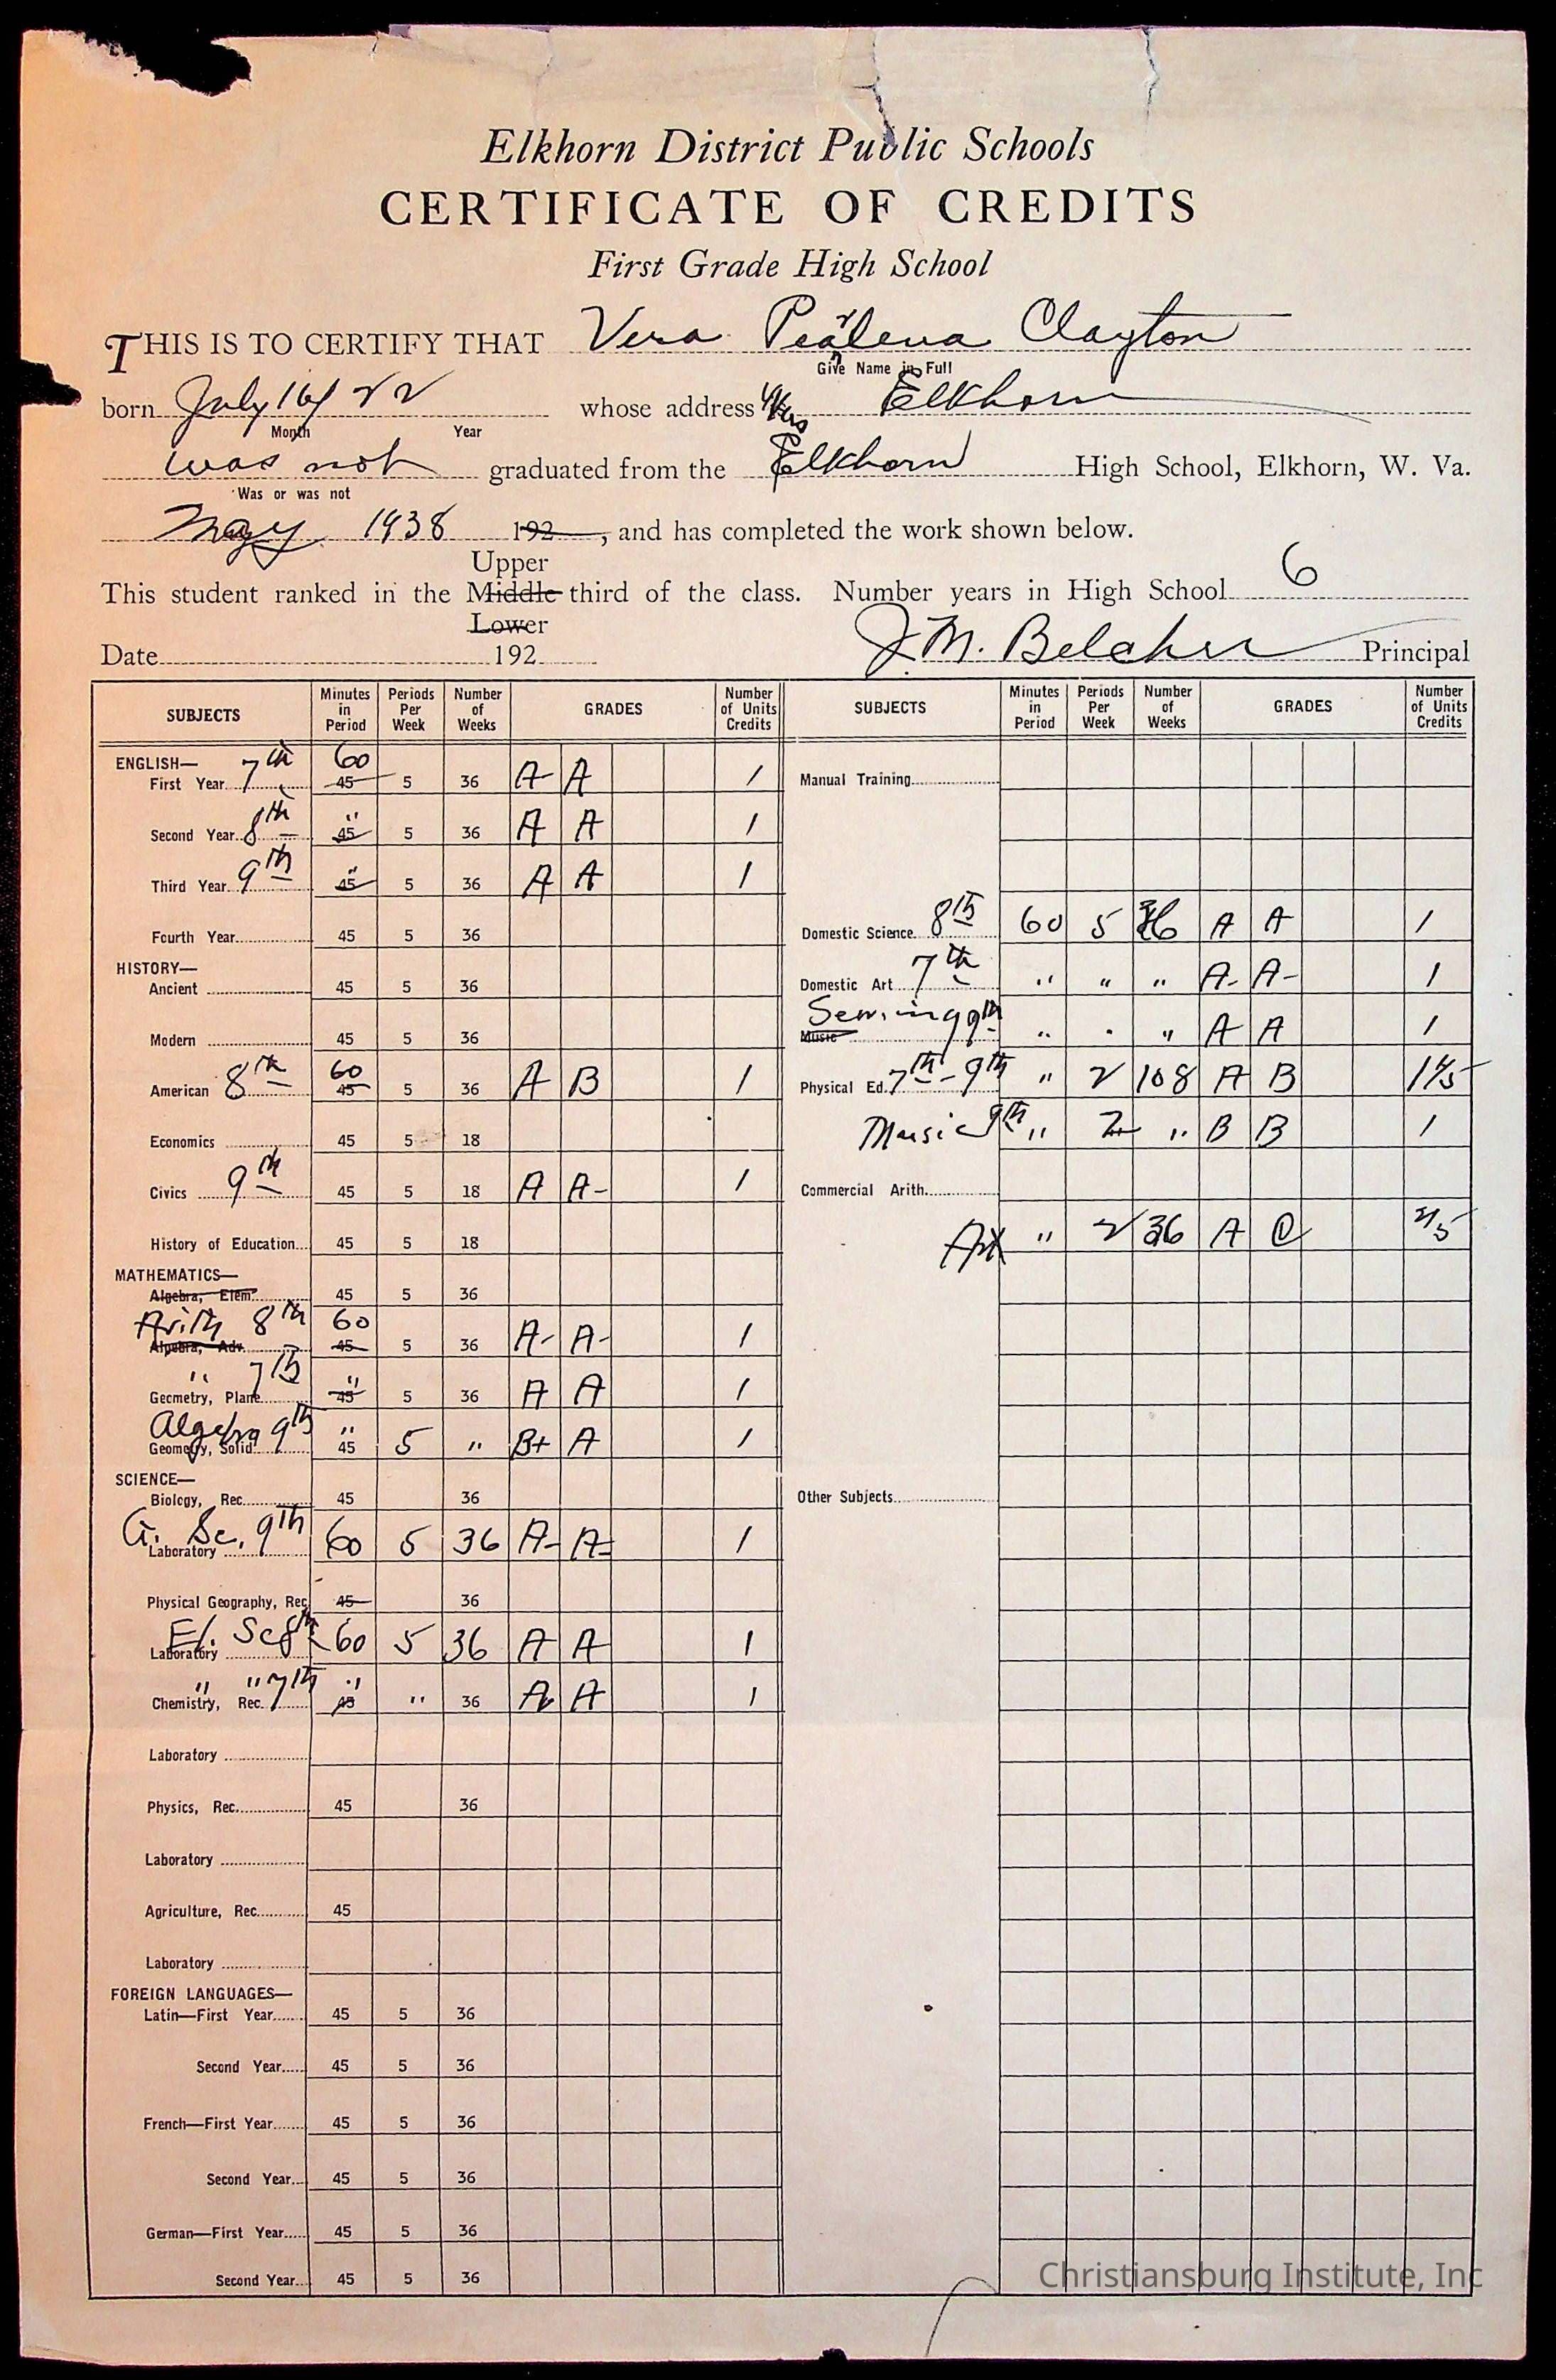 Elkhorn District Public Schools
CERTIFICATE OF CREDITS
First Grade High School
THIS IS TO CERTIFY THAT Vera Clayton
Give Name in Full
born July 16, 22 whose address Elkhorn
Month Year
was not graduated from the Elkhorn High School, Elkhorn, W. Va.
Was or was not
May 1938 192, and has completed the work shown below.
Upper
This student ranked in the Middle third of the class. Number years in High School 6
Lower
Date 192 J. M. Belcher Principal
SUBJECTS Minutes in Period Periods Per Week Number of Weeks GRADES Number of Units Credits
ENGLISH—
First Year 7th 60 45 5 36 A- A 1
Second Year 8th " 45 5 36 A A 1
Third Year 9th " 45 5 36 A A 1
Fourth Year 45 5 36
HISTORY—
Ancient 45 5 36
Modern 45 5 36
American 8th 60 45 5 36 A B 1
Economics 45 5 18
Civics 9th 45 5 18 A A- 1
History of Education 45 5 18
MATHEMATICS—
Algebra, Elem. 45 5 36
Arith 8th 60
Algebra, Adv. 45 5 36 A- A- 1
" 7th "
Geometry, Plane 45 5 36 A A 1
Algebra 9th "
Geometry, Solid 45 5 " B+ A 1
SCIENCE—
Biology, Rec. 45 36
G. Sc. 9th
Laboratory 60 5 36 A- A- 1
Physical Geography, Rec. 45 36
El. Sc 8th
Laboratory 60 5 36 A A 1
" " 7th "
Chemistry, Rec. 45 " 36 A 1
Laboratory
Physics, Rec. 45 36
Laboratory
Agriculture, Rec. 45
Laboratory
FOREIGN LANGUAGES—
Latin—First Year 45 5 36
Second Year 45 5 36
French—First Year 45 5 36
Second Year 45 5 36
German—First Year 45 5 36
Second Year 45 5 36
SUBJECTS Minutes in Period Periods Per Week Number of Weeks GRADES Number of Units Credits
Manual Training
Domestic Science 8th 60 5 36 A A 1
Domestic Art 7th " " " A- A- 1
Sewing 9th
Music " " " A A 1
Physical Ed. 7th-9th " 2 108 A B 1 1/5
Music 9th " 2 " B B 1
Commercial Arith.
Art " 2 36 A C 2/5
Other Subjects
Christiansburg Institute, Inc